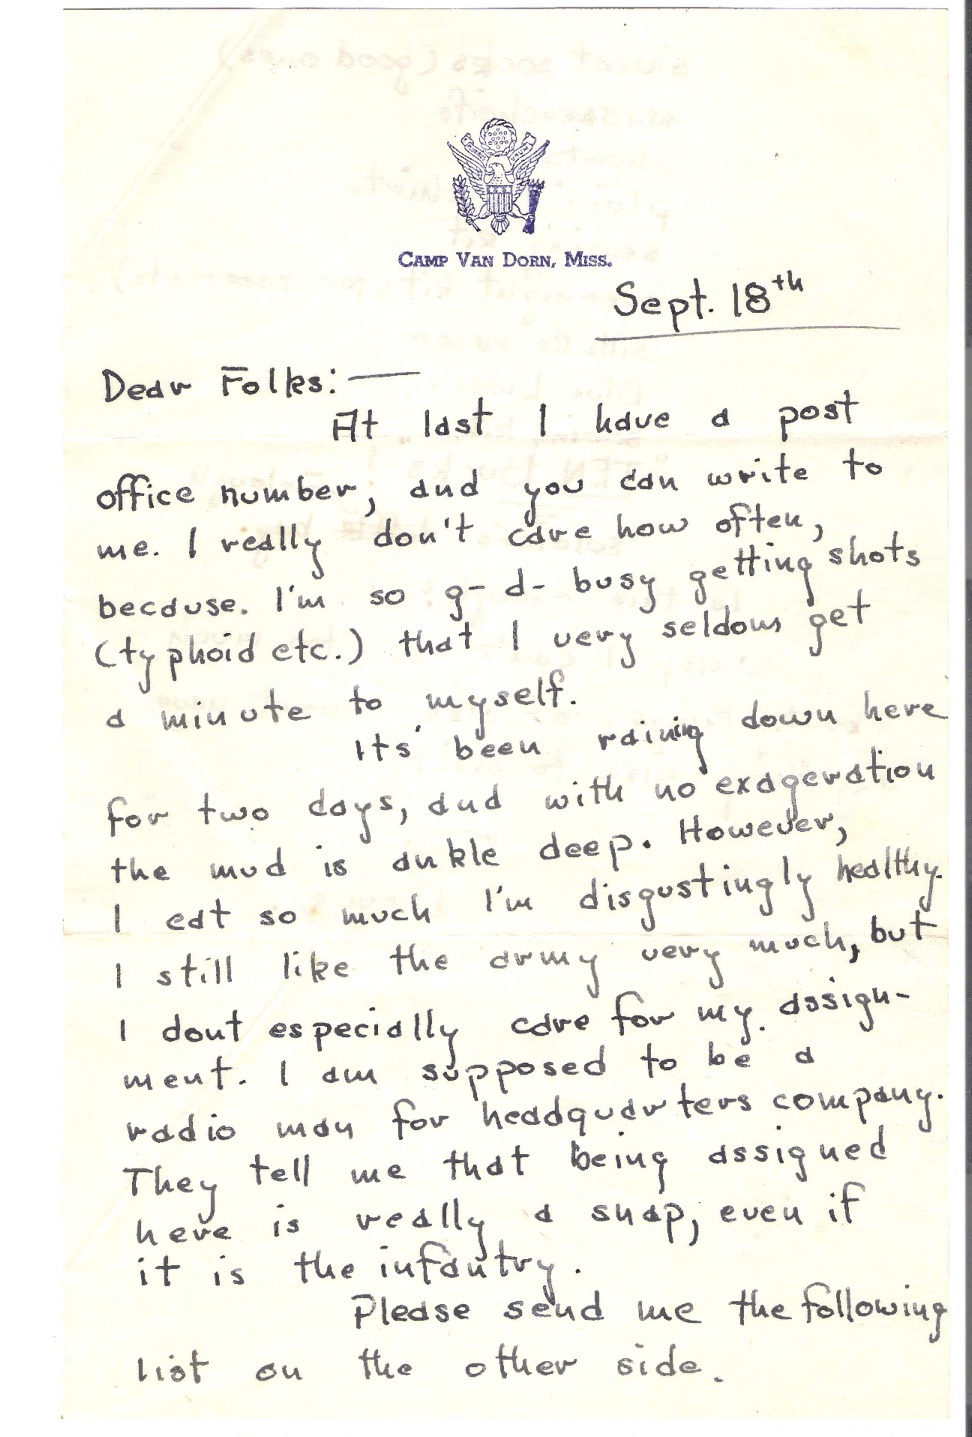 CAMP VAN DORN, MISS.
Sept. 18th
Dear Folks:—
At last I have a post
office number, and you can write to
me. I really don't care how often,
because. I'm so g- d- busy getting shots
(typhoid etc.) that I very seldom get
a minute to myself.
Its' been raining down here
for two days, and with no exageration
the mud is ankle deep. However,
I eat so much I'm disgustingly healthy.
I still like the army very much, but
I dont especially care for my assign-
ment. I am supposed to be a
radio man for headquarters company.
They tell me that being assigned
here is really a snap, even if
it is the infantry.
Please send me the following
list on the other side.